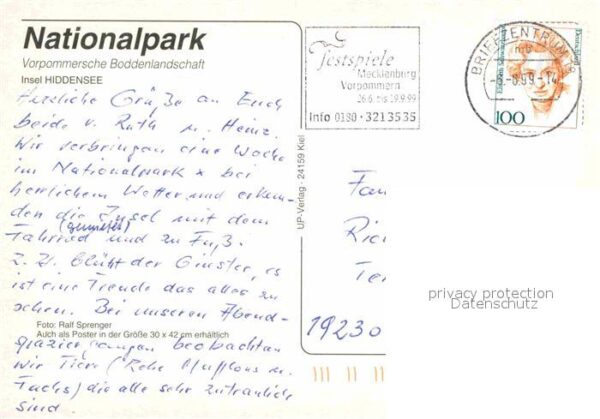 Nationalpark
Vorpommersche Boddenlandschaft
Insel HIDDENSEE
Herzliche Grüße an Euch
beide v. Ruth u. Heinz.
Wir verbringen eine Woche
im Nationalpark bei
herrlichem Wetter und erkun-
den die Insel mit dem
(gemietet)
Fahrrad und zu Fuß.
Z. Zt. blüht der Ginster, es
ist eine Freude das alles zu
sehen. Bei unseren Abend-
Foto: Ralf Sprenger
Auch als Poster in der Größe 30 x 42 cm erhältlich
spaziergängen beobachten
wir Tiere (Rehe Mufflons u.
Fuchs) die alle sehr zutraulich
sind.
UP-Verlag · 24159 Kiel
Festspiele
Mecklenburg
Vorpommern
26.6. bis 19.9.99
Info 0180 · 3213535
BRIEFZENTRUM 18
Deutschland
100
Fam
Ric
Te
19230
privacy protection
Datenschutz